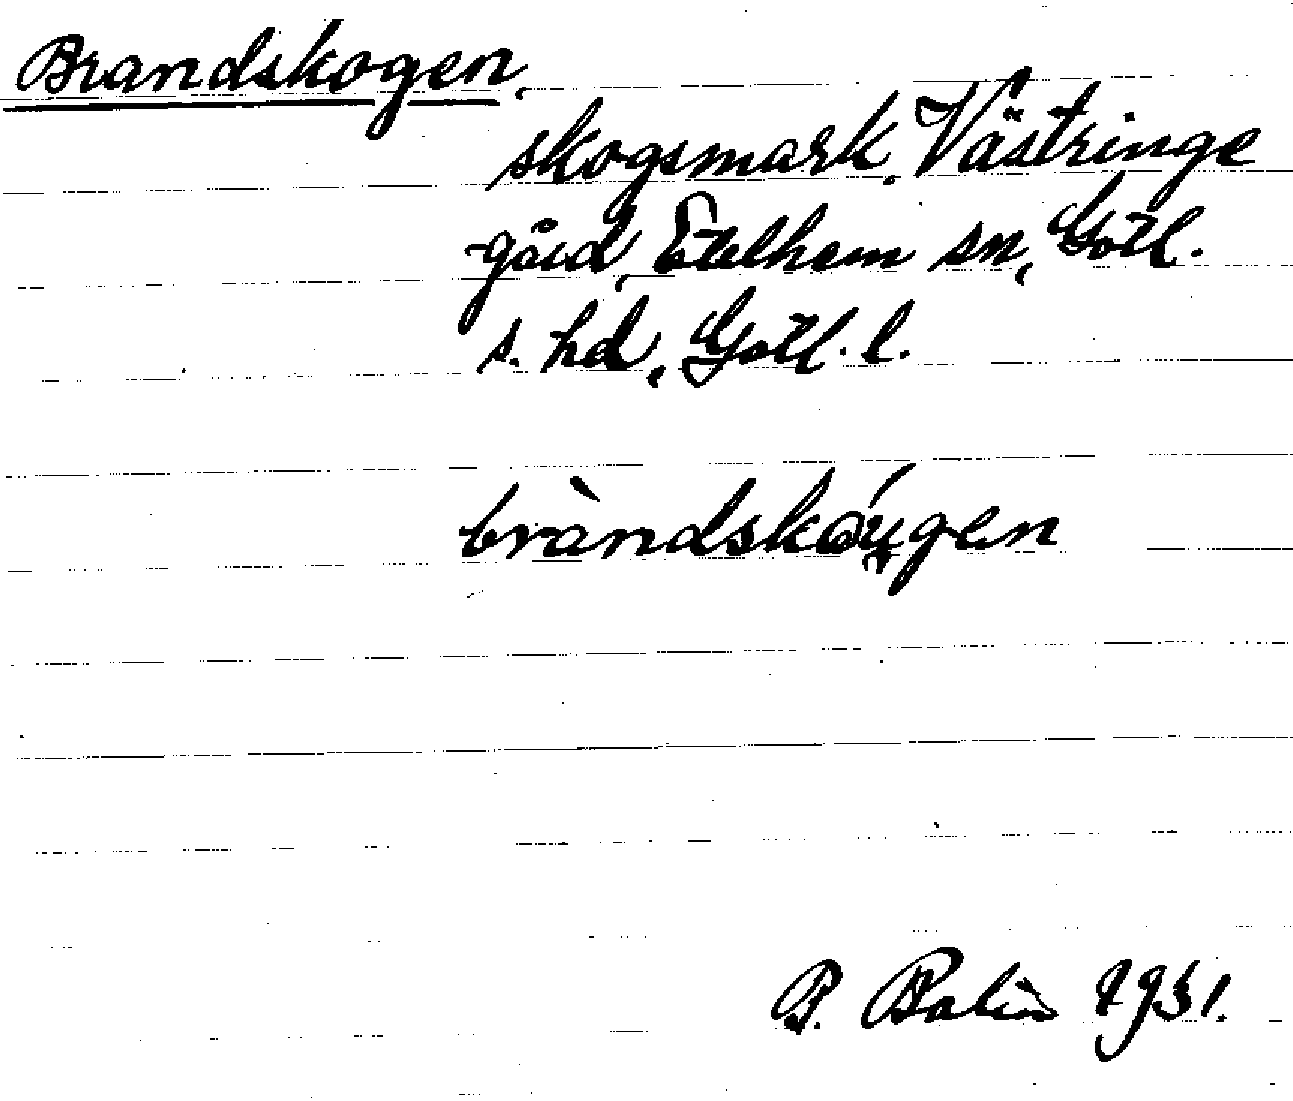 Brandskogen,
skogsmark, Västringe
gård, Etelhem sn, Gotl.
s. hd, Gotl. l.
bràndskóu̯gen
B. Bolin 1931.